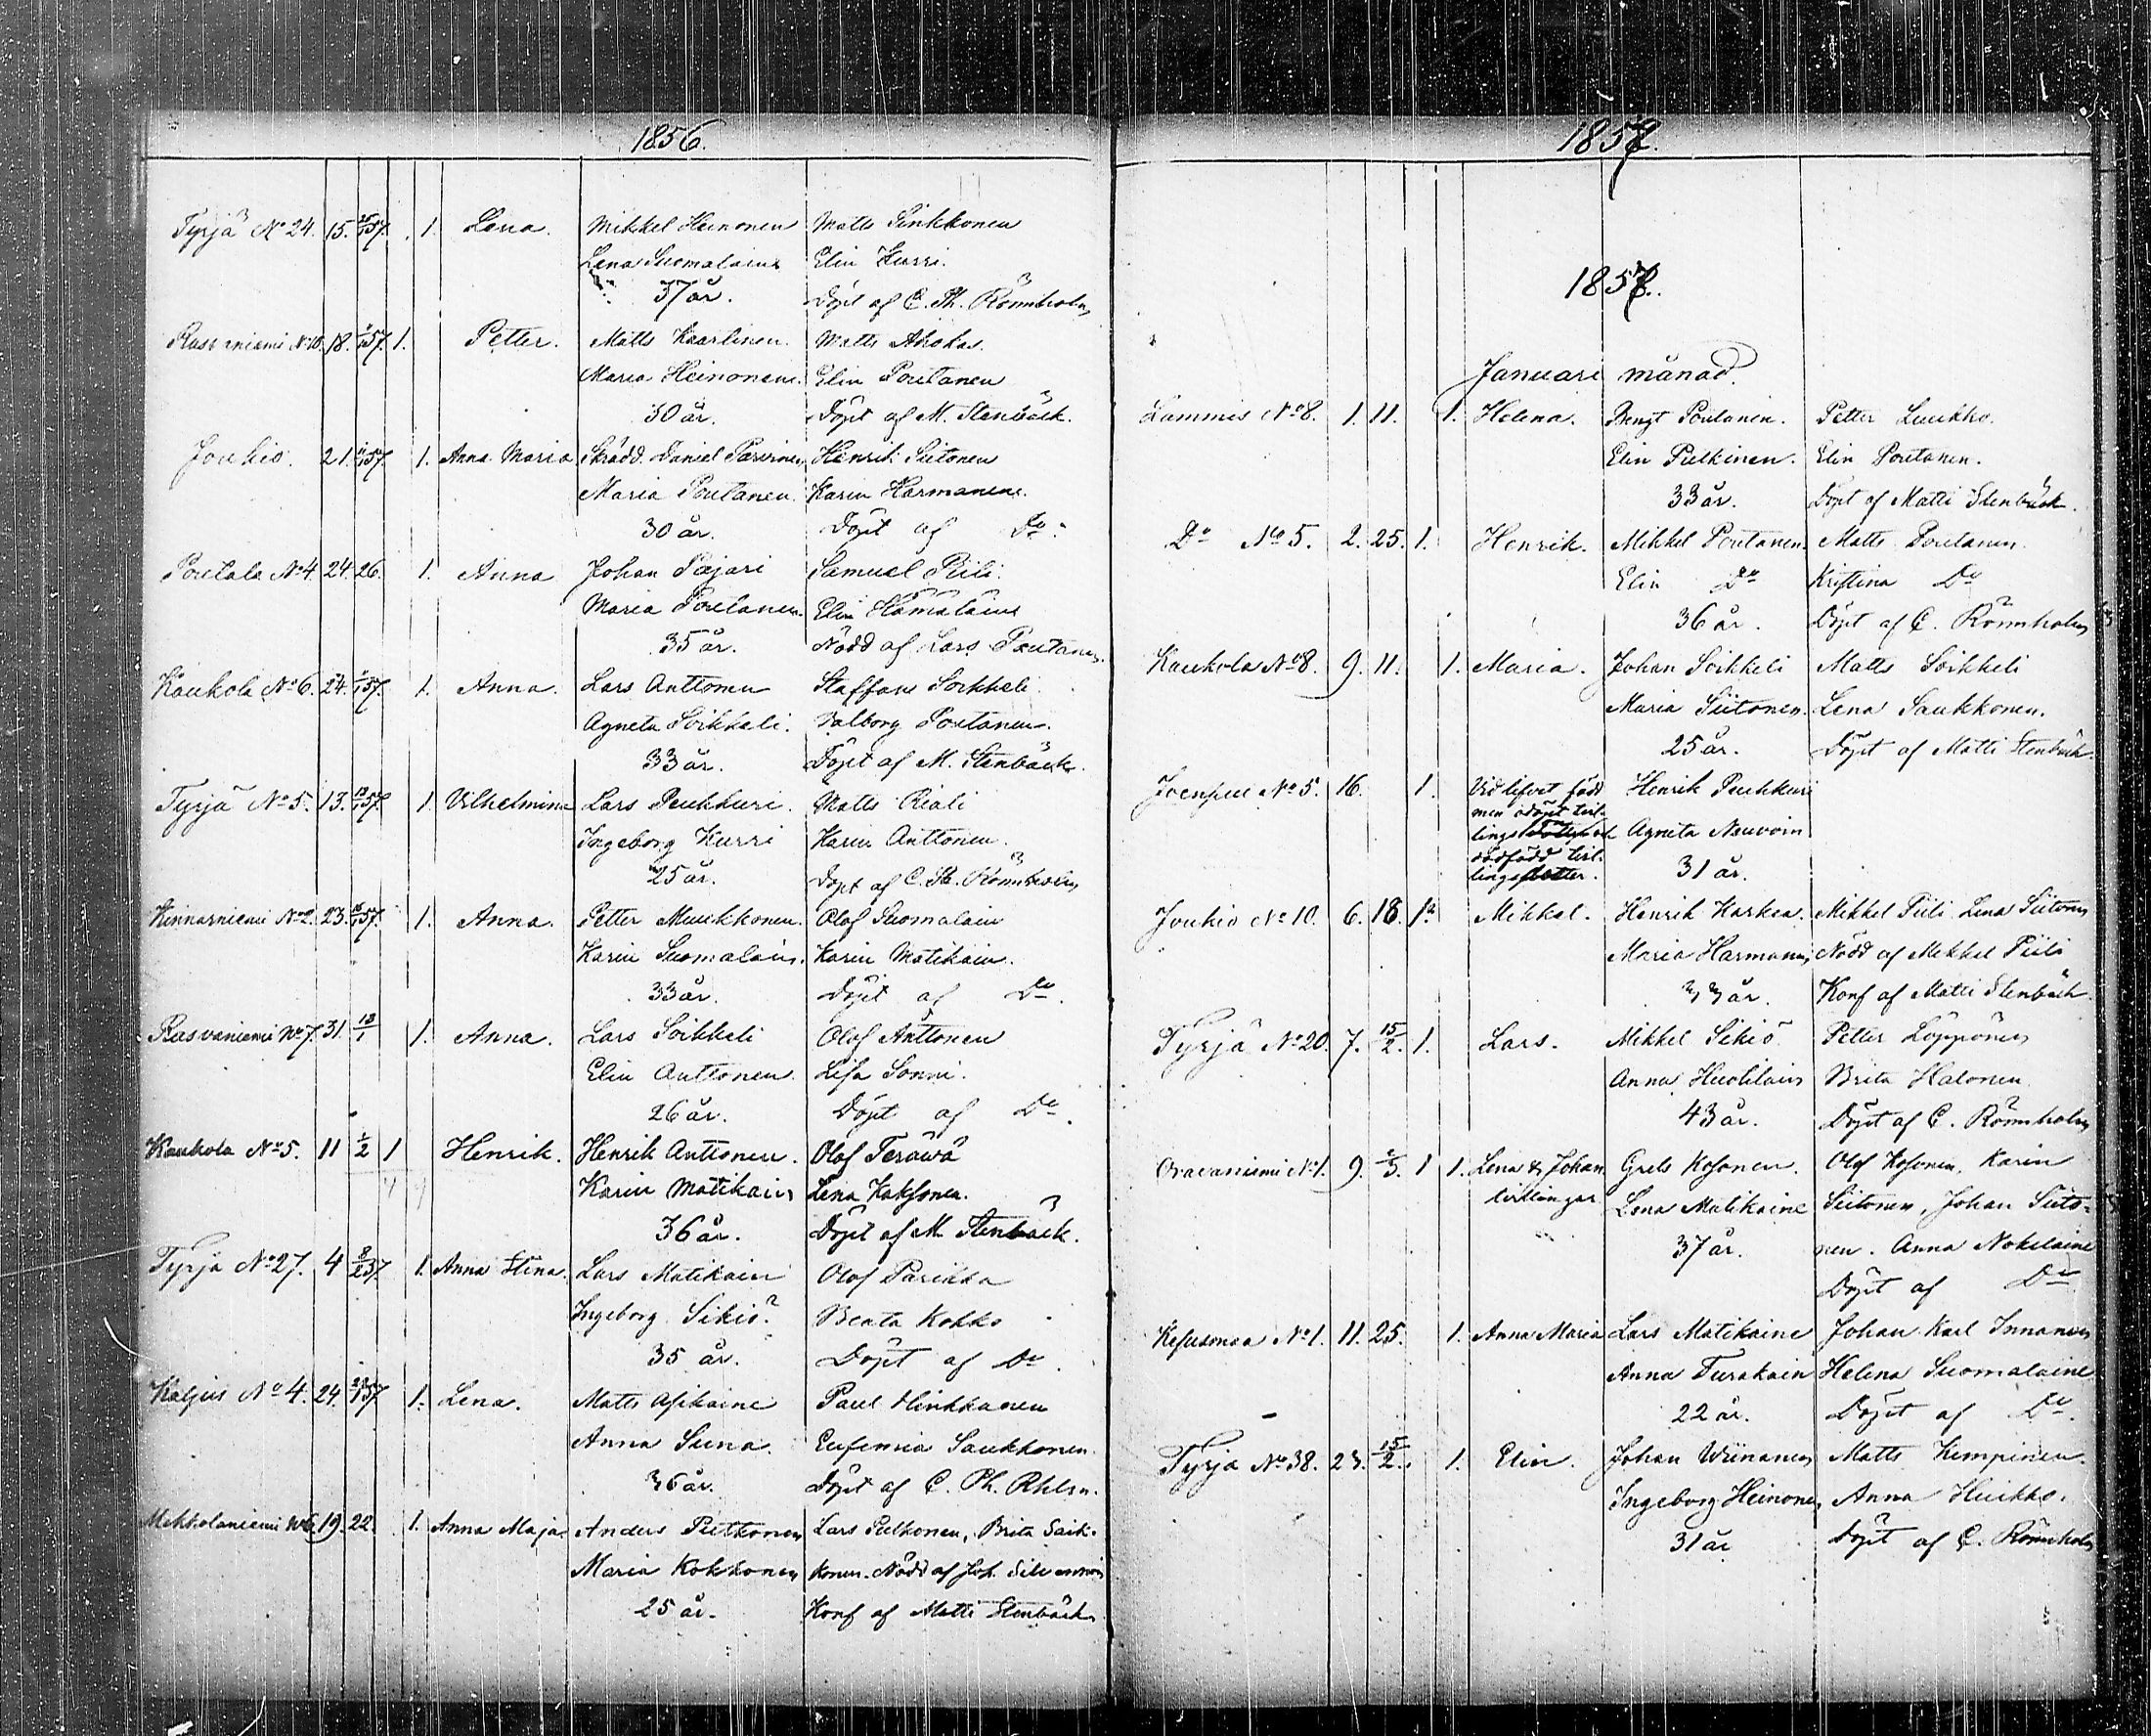 1856.
Tyrjä No 24. 15. 25/1 57. 1. Lena. Mikkel Heinonen Matts Sinkkonen
Lena Suomalaine Elin Kurri.
37 år. Döpt af C. Th. Rönnholm
Rasvaniemi No 10. 18. 1/1 57. 1. Petter. Matts Kaartinen. Matts Ahokas.
Maria Heinonen. Elin Poutanen
30 år. Döpt af M. Stenbäck.
Joukio. 21. 1/1 57. 1. Anna Maria Skrädd. Daniel Parvinen Henrik Siitonen
Maria Poutanen. Karin Harmanene.
30 år. Döpt af Do.
Poutala No 4. 24. 26. 1. Anna Johan Pajari Samuel Piili.
Maria Poutanen. Elin Hämäläine
35 år. Nödd af Lars Poutanen.
Kaukola No 6. 24. 1/1 57. 1. Anna. Lars Anttonen Staffan Soikkeli
Agneta Soikkeli. Valborg Poutanen.
33 år. Döpt af M. Stenbäck.
Tyrjä No 5. 13. 18/1 57 1. Vilhelmina Lars Puukkuri. Matts Riali
Ingeborg Kurri Karin Anttonen.
25 år. Döpt af C. Th. Rönnholm
Kinnarniemi No 2. 23. 57. 1. Anna. Petter Muukkonen. Olof Suomalain
Karin Suomalain. Karin Matikain.
33 år. Döpt af Do.
Rasvaniemi No 7. 31. 18/1 1. Anna. Lars Soikkeli Olof Anttonen
Elin Anttonen. Lisa Sonni.
26 år. Döpt af Do.
Kaukola No 5. 11 1/2 1 Henrik. Henrik Anttonen. Olof Teräwä
Karin Matikain Lena Kaksonen.
36 år. Döpt af M. Stenbäck.
Tyrjä No 27. 4 8/2 57 1. Anna Stina. Lars Matikain Olof Parikka
Ingeborg Sikiö? Beata Kokko
35 år. Döpt af Do.
Kaljus No 4. 24. 57 1. Lena. Matts Asikaine Paul Hinkkanen
Anna Suna. Eufemia Saukkonen.
36 år. Döpt af C. Ph. Rhlm.
Mikkolaniemi No 6 19. 22. 1. Anna Maja. Anders Pulkonen Lars Pulkonen, Brita Saik-
Maria Kokkonen konen. Nödd af Joh.
25 år. Konf af Matti Stenbäck.
1857.
1857.
Januari månad.
Lammis No 8. 1. 11. 1. Helena. Bengt Poutanen. Petter Luukko.
Elin Pulkinen. Elin Poutanen.
33 år. Döpt af Matti Stenbäck.
Do No 5. 2. 25. 1. Henrik. Mikkel Poutanen. Matts Poutanen.
Elin Do Kristina Do
36 år. Döpt af C. Rönnholm
Kaukola No 8. 9. 11. 1. Maria. Johan Soikkeli Matts Soikkeli
Maria Siitonen. Lena Saukkonen.
25 år. Döpt af Matti Stenbäck.
Joenpu No 5. 16. 1. Vid lifvet född Henrik Puukkuri
men odöpt tvil-
lings dotter och Agneta Neuvoin
dödfödd tvil-
lingsdotter. 31 år.
Joukio No 10. 6. 18. 1. Mikkel. Henrik Karkea. Mikkel Piili Lena Siitonen
Maria Harmanen, Nödd af Mikkel Piili
33 år. Konf af Matti Stenbäck.
Tyrjä No 20. 7. 15/2. 1. Lars. Mikkel Sikiö Petter Löppönen
Anna Huolilain Brita Halonen
43 år. Döpt af C. Rönnholm
Oravaniemi No 1. 9. 1 1. Lena & Johan Grels Kosonen. Olof Kosonen, Karin
tvillingar Lena Matikaine Siitonen, Johan Siito-
37 år. nen. Anna Nokelaine
Döpt af Do
Kesusmaa No 1. 11. 25. 1. Anna Maria Lars Matikaine Johan Karl Innanen
Anna Turakain Helena Suomalaine
22 år. Döpt af Do.
Tyrjä No 38. 23. 15/2. 1. Elin. Johan Wiinanen Matts Kempinen.
Ingeborg Heinonen, Anna Huikko.
31 år Döpt af C. Rönnholm